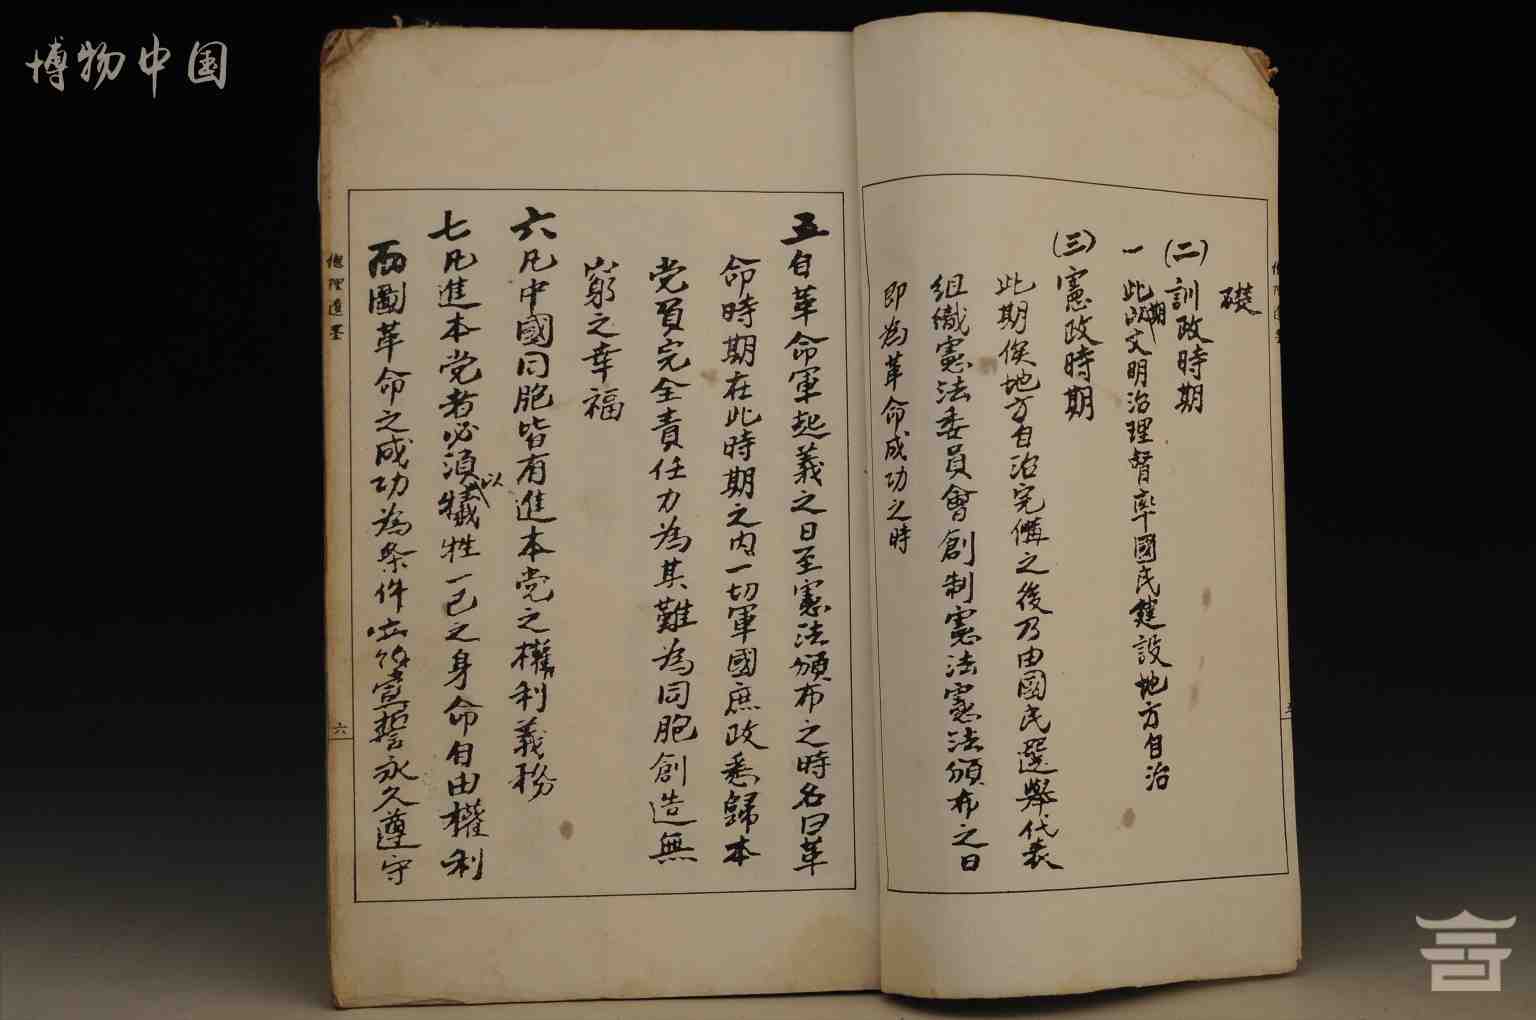 博物中国
礎
(二)訓政時期
一 此期以文明治理督率國民建設地方自治
(三)憲政時期
此期俟地方自治完備之後乃由國民選舉代表
組織憲法委員會創制憲法憲法頒布之日
即為革命成功之時
五自革命軍起義之日至憲法頒布之時名曰革
命時期在此時期之内一切軍國庶政悉歸本
党負完全責任力為其難為同胞創造無
窮之幸福
六凡中國同胞皆有進本党之權利義務
七凡進本党者必須以犧牲一己之身命自由權利
而圖革命之成功為条件立約宣誓永久遵守
總理遺墨
六